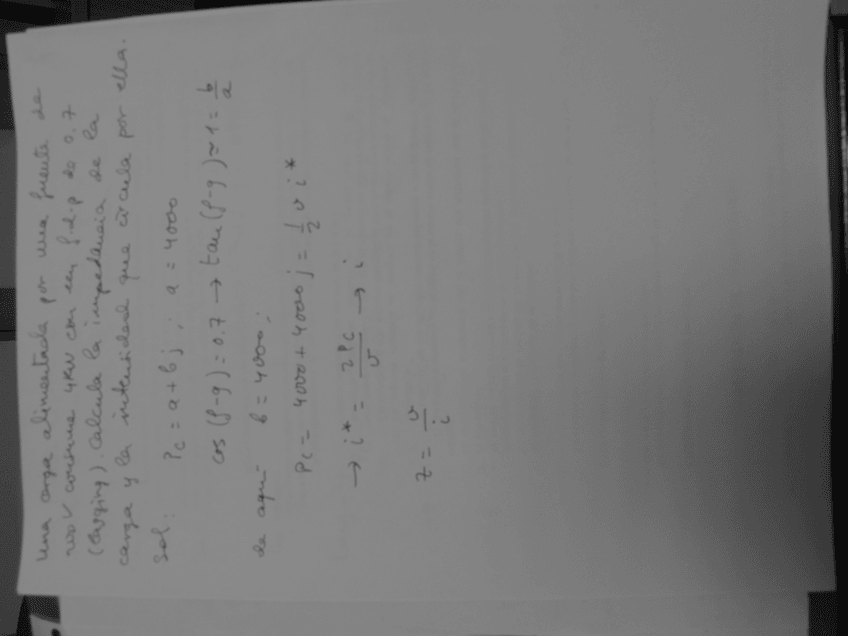 Una carga alimentada por una fuente de
V consume 4KW con un f.d.p de 0.7
(lagging). Calcula la impedancia de la
carga y la intensidad que circula por ella.
Sol: Pc = a + bj ; a = 4000
cos (φ-φ) = 0.7 → tan (φ-φ) ≈ 1 = b/a
de aquí b = 4000;
Pc = 4000 + 4000 j = 1/2 v i*
→ i* = 2Pc/v → i
Z = v/i